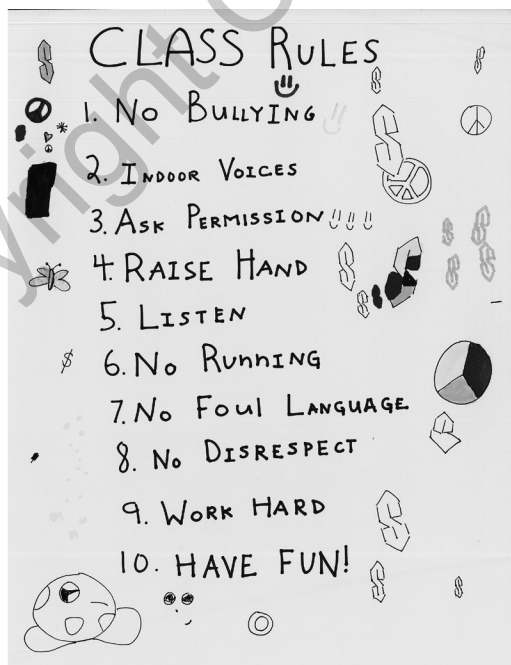 CLASS RULES
1. No BULLYING
2. INDOOR VOICES
3. ASK PERMISSION
4. RAISE HAND
5. LISTEN
6. No RUNNING
7. No FOUL LANGUAGE
8. No DISRESPECT
9. WORK HARD
10. HAVE FUN!
$